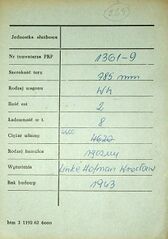 Jednostka służbowa
Nr inwentarza PKP 1361-9
Szerokość toru 785 mm
Rodzaj wagonu Wh
Ilość osi 2
Ładowność w t. 8
Ciężar własny 4620
Rodzaj hamulca ręczny
Wytwórnia Linke Hofman Wrocław
Rok budowy 1943